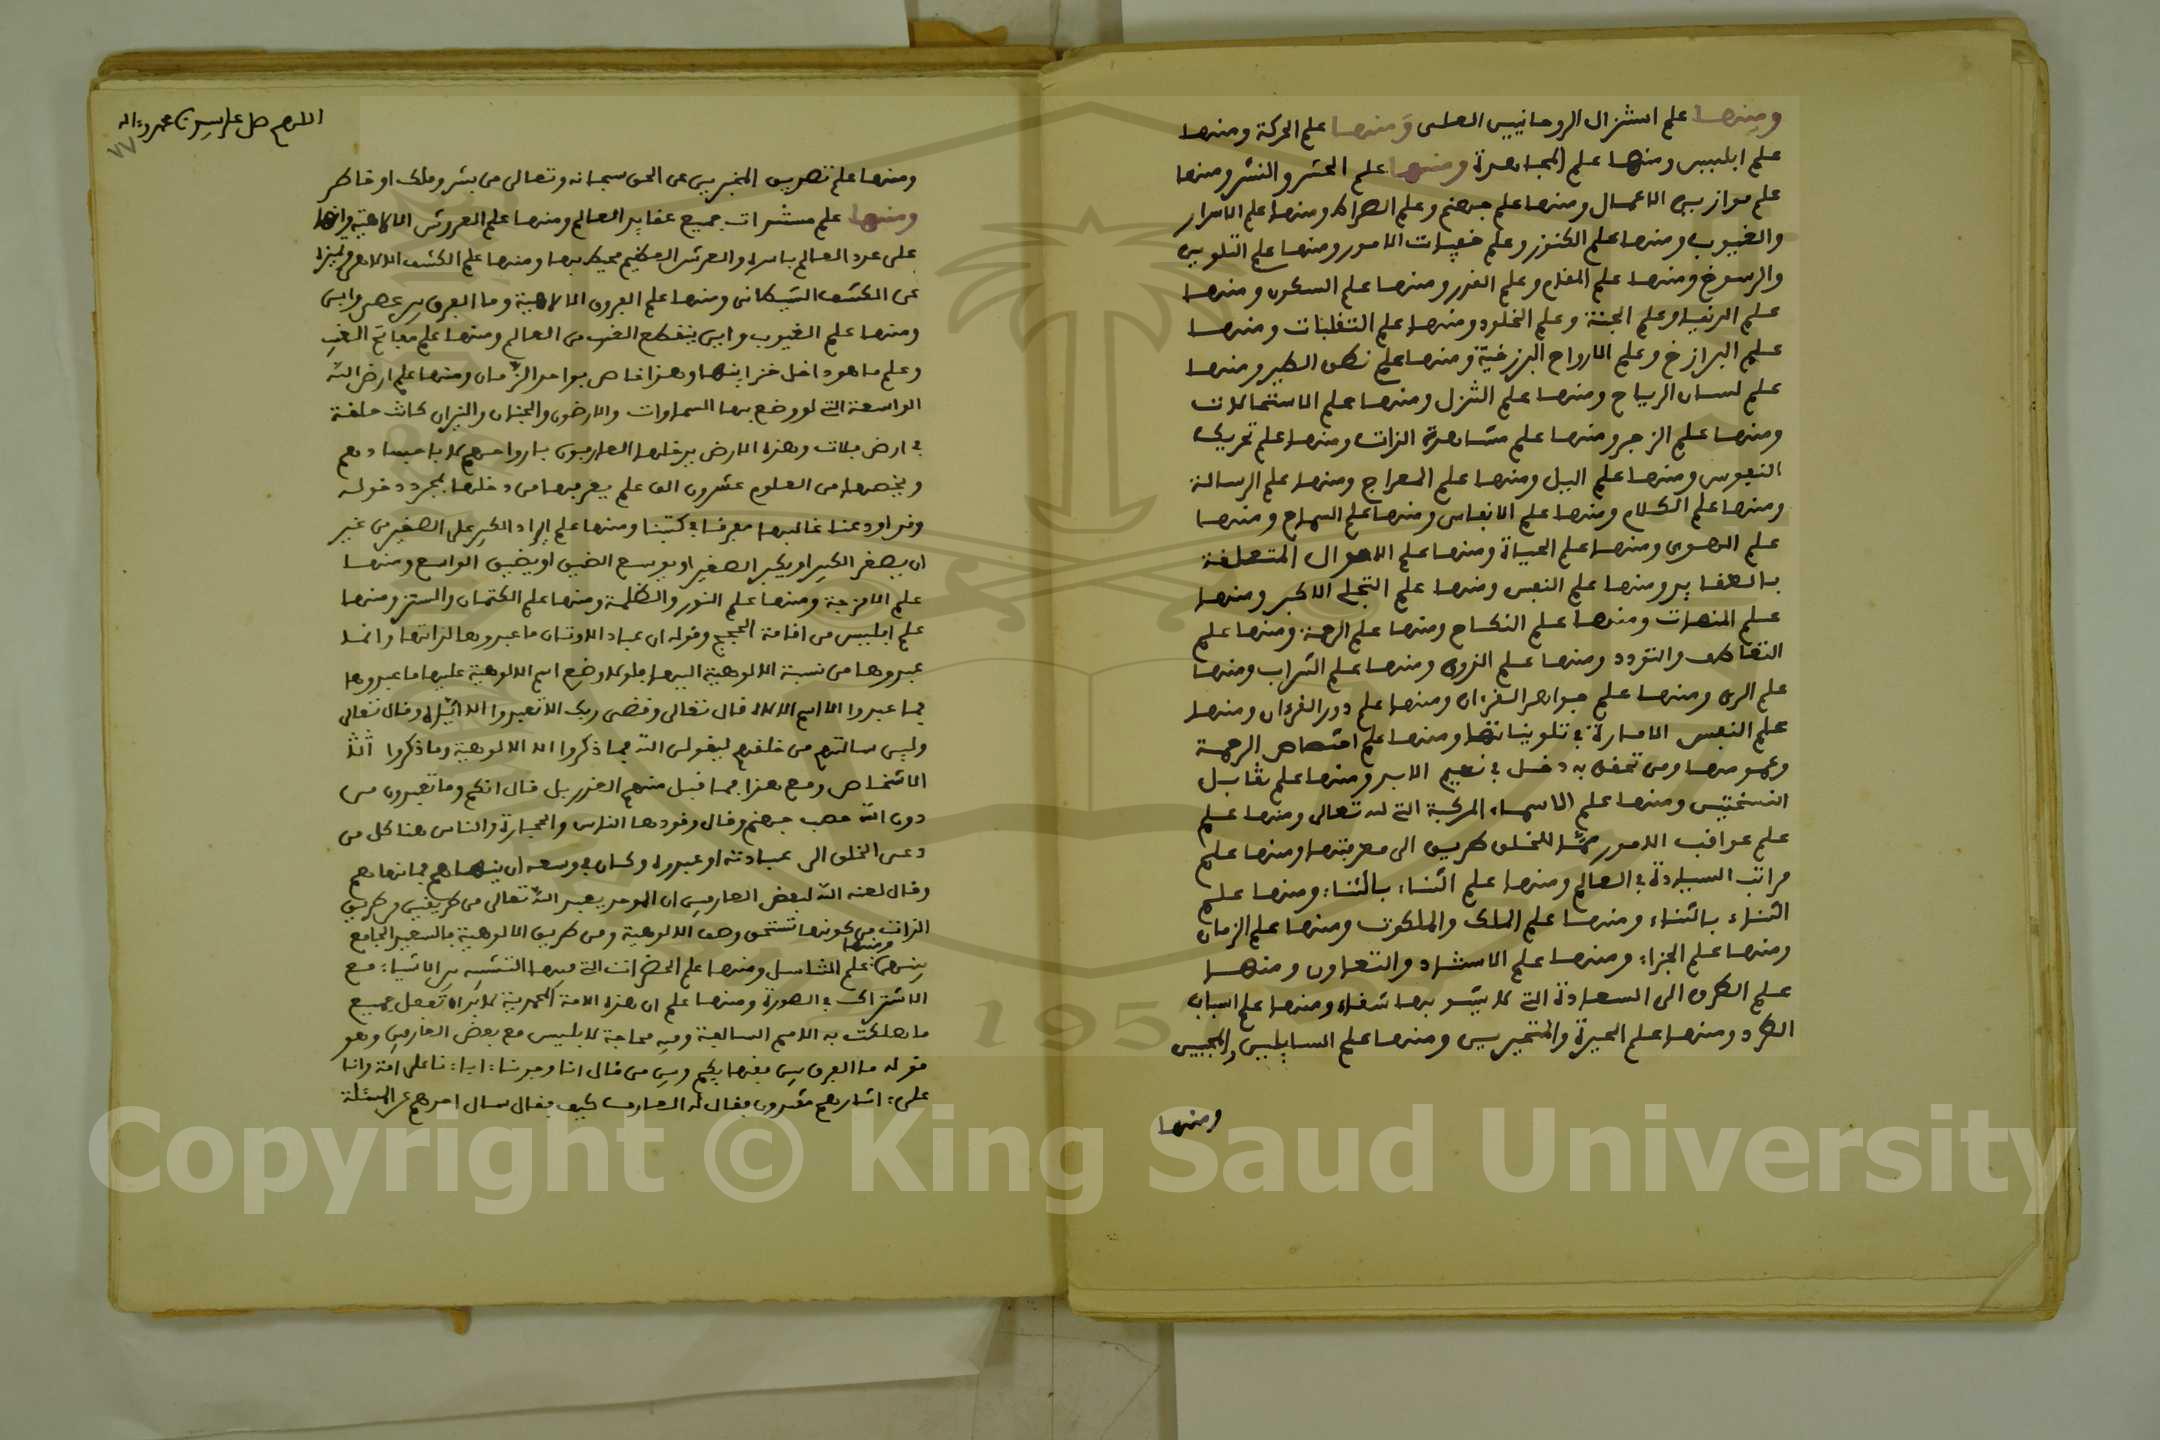 ومنها علم استنزال الروحانيين العلى ومنها علم الحركة ومنها
علم ابليس ومنها علم المجاهدة ومنها علم الحشر والنشر ومنها
علم موازين الاعمال ومنها علم جهنم وعلم الصراط ومنها علم الاسرار
والغيوب ومنها علم الكنوز وعلم خفيات الامور ومنها علم التلوين
والرسوخ ومنها علم القلم وعلم القدر ومنها علم السكون ومنها
علم الدنيا وعلم الجنة وعلم الخلود ومنها علم التقلبات ومنها
علم البرازخ وعلم الارواح البرزخية ومنها علم نطق الطير ومنها
علم لسان الرياح ومنها علم التنزل ومنها علم الاستحالات
ومنها علم الزجر ومنها علم مشاهدة الذات ومنها علم تحريك
النفوس ومنها علم الميل ومنها علم المعراج ومنها علم الرسالة
ومنها علم الكلام ومنها علم الانفاس ومنها علم السماع ومنها
علم الهوى ومنها علم الحياة ومنها علم الاحوال المتعلقة
بالعقايد ومنها علم النفس ومنها علم التجلى الاكبر ومنها
علم المنصات ومنها علم النكاح ومنها علم الرحمة ومنها علم
التعاطف والتودد ومنها علم الذوق ومنها علم الشراب ومنها
علم الرى ومنها علم جواهر القرءان ومنها علم درر القرءان ومنها
علم النفس الامارة في تلويناتها ومنها علم اختصاص الرحمة
وعمومها ومن تحقق به دخل في نعيم الابد ومنها علم تقابل
النسختين ومنها علم الاسماء المركبة التى لله تعالى ومنها علم
علم عواقب الامور مما للخلق طريق الى معرفتها ومنها علم
مراتب السيادة في العالم ومنها علم الثناء بالثناء ومنها علم
الثناء بالثناء ومنها علم الملك والملكوت ومنها علم الزمان
ومنها علم الجزاء ومنها علم الاستناد والتعاون ومنها
علم الطرق الى السعادة التى لا يشوبها شقاء ومنها علم اسباب
الطرد ومنها علم الحيرة والمتحيرين ومنها علم السايلين والمجيبين
ومنها
اللهم صل على سيدنا محمد وءاله
٧٧
ومنها علم تصديق المخبرين عن الحق سبحانه وتعالى من بشر وملك او خاطر
ومنها علم مستندات جميع عقايد العالم ومنها علم العروش الالاهية وانها
على عدد العالم باسره والعرش العظيم محيط بها ومنها علم الكشف الالاهي وتميزه
عن الكشف الشيطانى ومنها علم الفروق الالاهية وما الفرق بين عصى وابى
ومنها علم الغيوب واين ينقطع الغيب من العالم ومنها علم مفاتح الغيب
وعلم ما هو داخل خزاينها وهذا خاص بواحد الزمان ومنها علم ارض الله
الواسعة التى لو وضع بها السماوات والارضون والجنان والنيران كانت حلقة
في ارض فلات وهذه الارض يدخلها العارفون بارواحهم لا باجسادهم
ويخصها من العلوم عشرون الف علم يعرفها من دخلها بمجرد دخوله
وقد اودعنا غالبها مفرقا في كتبنا ومنها علم ايراد الكبير على الصغير من غير
ان يصغر الكبير او يكبر الصغير او يوسع الضيق او يضيق الواسع ومنها
علم الامزجة ومنها علم النور والظلمة ومنها علم الكتمان والستر ومنها
علم ابليس من اقامة الحجج وقوله ان عباد الاوثان ما عبدوها لذاتها وانما
عبدوها من نسبة الالوهية اليها فلولا وضع اسم الالوهية عليها ما عبدوها
فما عبدوا الا اسم الالاه قال تعالى وقضى ربك الا تعبدوا الا اياه وقال تعالى
ولين سالتهم من خلقهم ليقولن الله فما ذكروا الا الالوهية وما ذكروا
الاشخاص ومع هذا فما قبل منهم العذر بل قال انكم وما تعبدون من
دون الله حصب جهنم وقال وقودها الناس والحجارة والناس هنا كل من
دعى الخلق الى عبادته او عبدوه وكان في وسعه ان ينهاهم فما نهاهم
وقال لعنه الله لبعض العارفين ان الموحد يعبد الله تعالى من طريقين من طريق
الذات من كونها تستحق وصف الالوهية ومن طريق الالوهية فالسعيد الجامع
بينهما ومنها علم التماثل ومنها علم الحضرات التى فيها التشبيه بين الاشياء مع
الاشتراك في الصورة ومنها علم ان هذه الامة المحمدية لابد ان تفعل جميع
ما هلكت به الامم السالفة وفيه محاجة لابليس مع بعض العارفين وهو
قوله ما الفرق بين فقهايكم وبين من قال انا وجدنا ءاباءنا على امة وانا
على ءاثارهم مقتدون فقال له العارف كيف فقال سال احدهم عن المسئلة